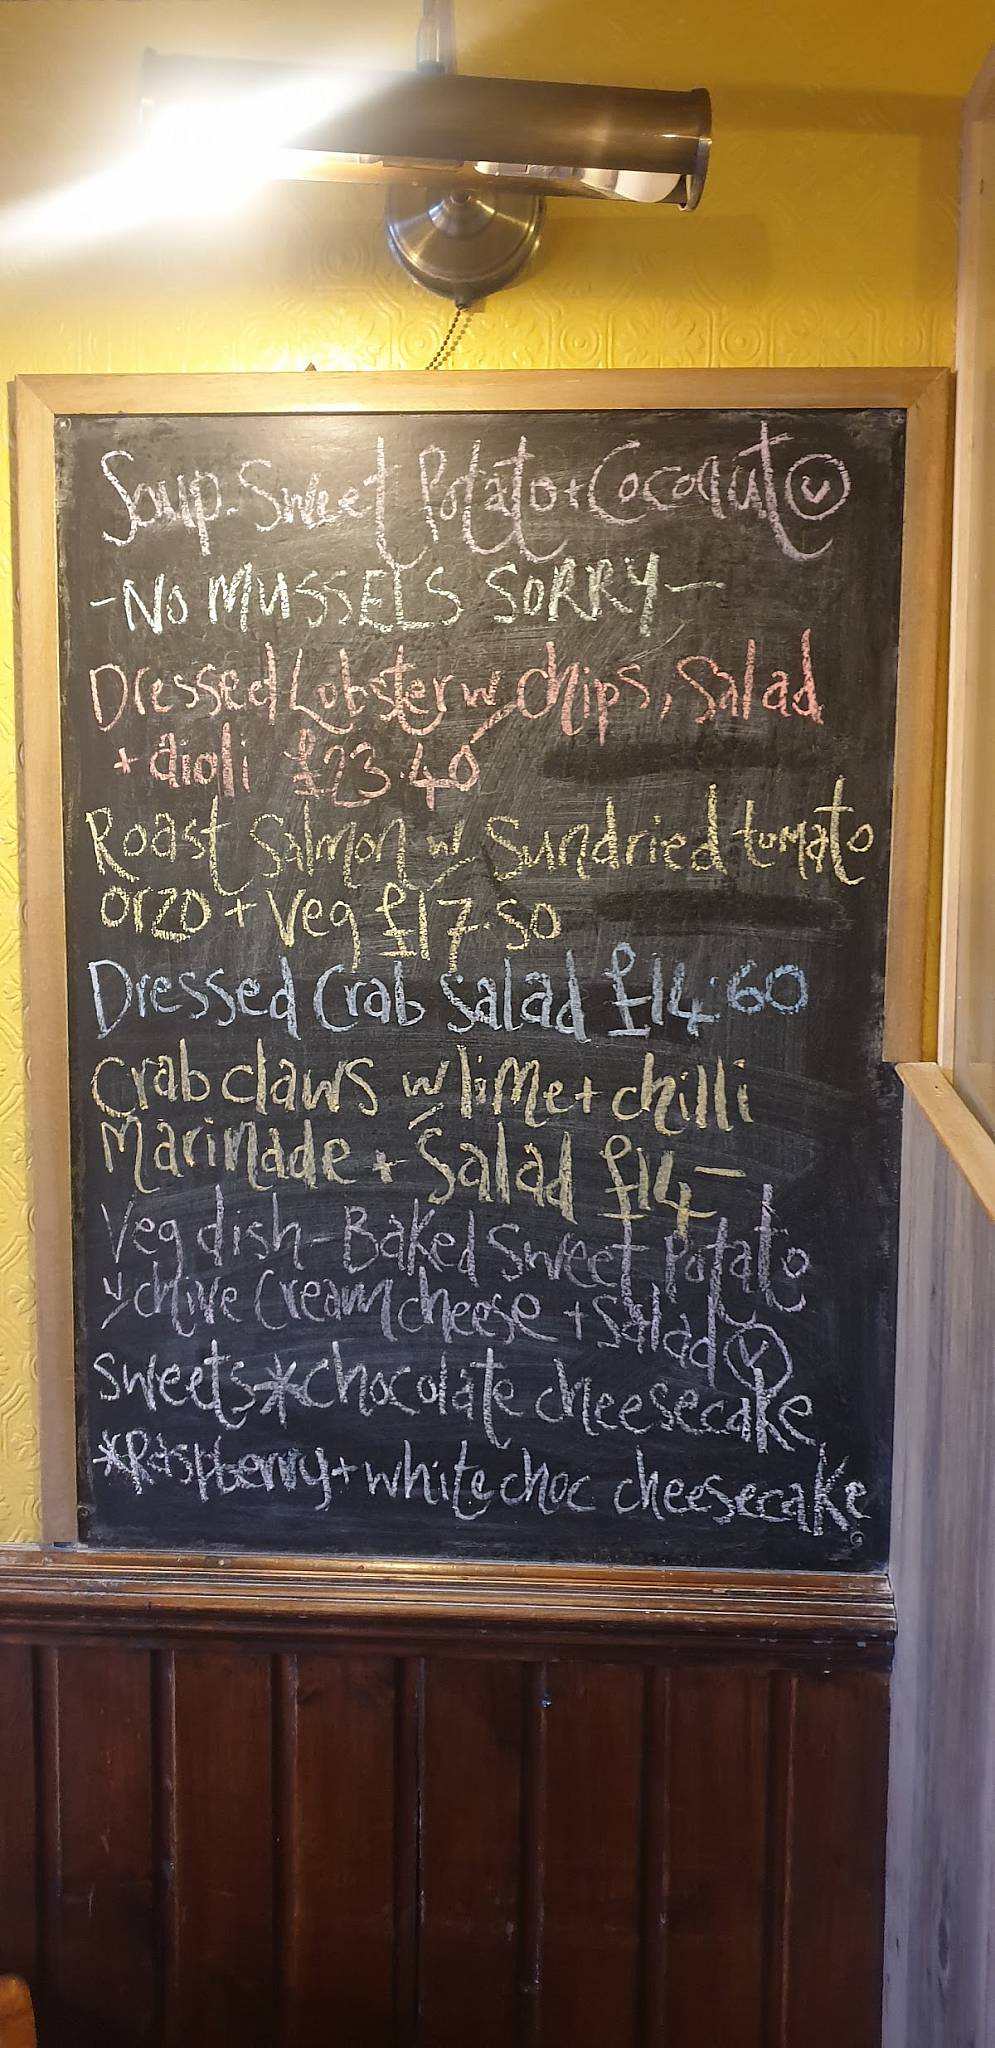 Soup-Sweet Potato+Coconut Ⓥ
-No MUSSELS SORRY-
Dressed Lobster w chips, Salad
+ aioli £23.40
Roast Salmon w Sundried tomato
orzo + Veg £17.50
Dressed Crab Salad £14.60
Crab claws w lime + chilli
Marinade + Salad £14-
Veg dish-Baked Sweet Potato
w chive Cream cheese + Salad Ⓥ
Sweets*chocolate cheesecake
*Raspberry+white choc cheesecake